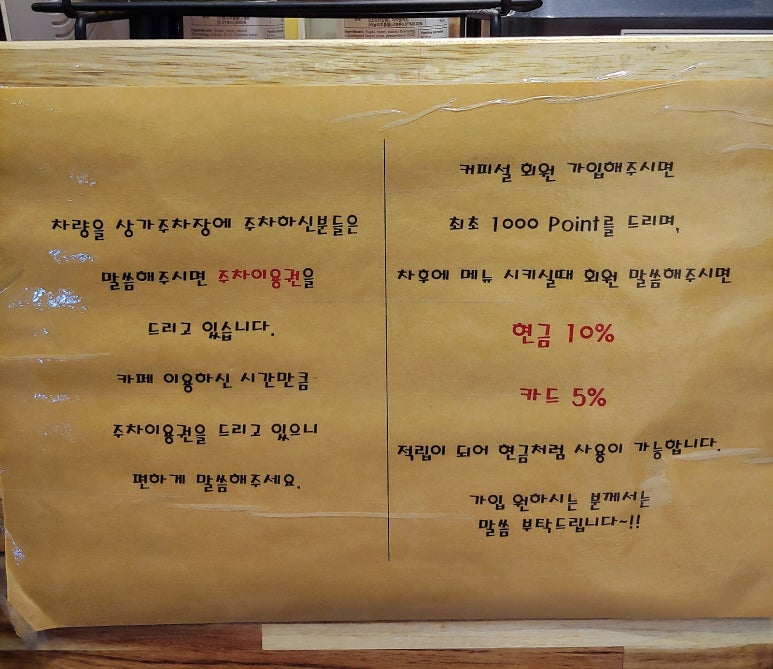 차량을 상가주차장에 주차하신분들은
말씀해주시면 주차이용권을
드리고 있습니다.
카페 이용하신 시간만큼
주차이용권을 드리고 있으니
편하게 말씀해주세요.
커피설 회원 가입해주시면
최초 1000 Point를 드리며,
차후에 메뉴 시키실때 회원 말씀해주시면
현금 10%
카드 5%
적립이 되어 현금처럼 사용이 가능합니다.
가입 원하시는 분께서는
말씀 부탁드립니다~!!